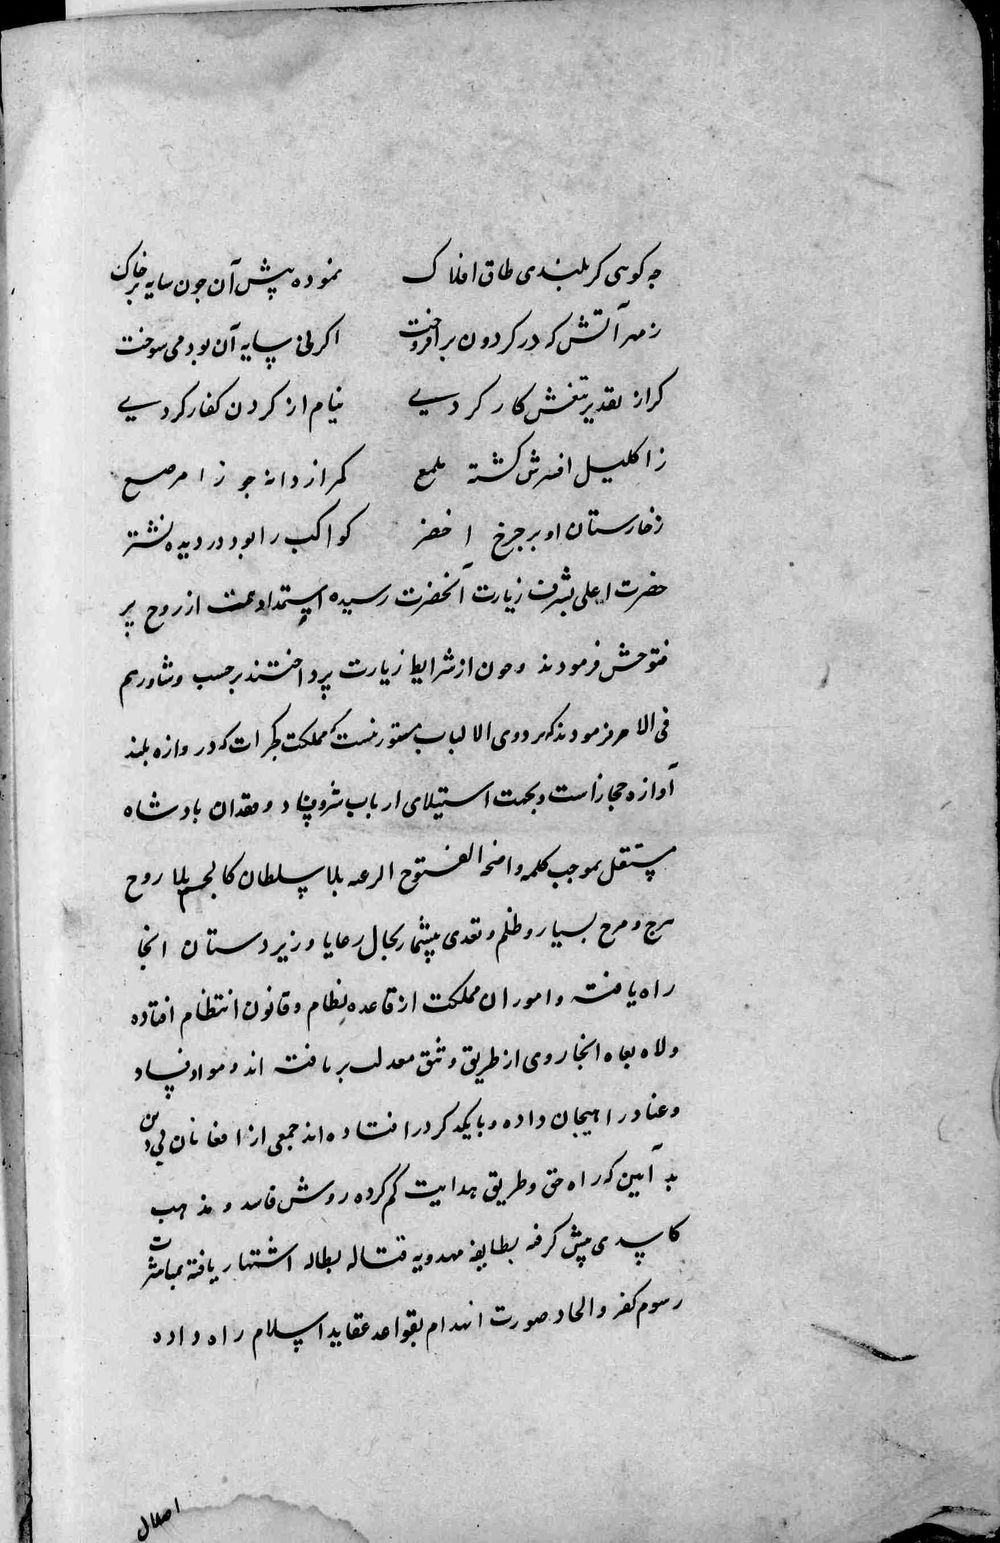 چه کوهی کز بلندی طاق افلاک نموده پیش آن چون سایه بر خاک
ز مهر آتش که در کردون برافروخت اکر نی سایه آن بود می سوخت
کر از تقدیر تیغش کار کردیی نیام از کردن کفار کردیی
ز اکلیل افسرش کشته ملمع کمر از دانه جوزا مرصع
ز خارستان او بر چرخ اخضر کواکب را بود در دیده نشتر
حضرت اعلی بشرف زیارت آنحضرت رسیده استمداد همت از روح پر
فتوحش فرمودند و چون از شرایط زیارت پرداختند بر حسب و شاورهم
فی الامر فرمودند که بر ذوی الالباب مستور نیست که مملکت کجرات که دروازه بلند
آوازه حجاز است و بجهت استیلای ارباب شر و فساد و فقدان بادشاه
مستقل بموجب کلمه واضحه الفتوح الرعیه بلا سلطان کالجسم بلا روح
هرج و مرج بسیار و ظلم و تعدی بیشمار بحال رعایا و زیردستان انجا
راه یافته و امور ان مملکت از قاعده نظام و قانون انتظام افتاده
ولاه بغاه انجا روی از طریق وثق معدلت بر تافته اند و مواد فساد
و عناد را هیجان داده و با یکدکر در افتاده اند جمعی از افغانان بی دین
بد آیین که راه حق و طریق هدایت کم کرده روش فاسد و مذهب
کاسدی پیش کرفته بطایفه مهدویه قتاله بطاله اشتهار یافته بمباشرت
رسوم کفر و الحاد صورت انهدام بقواعد عقاید اسلام راه داده
اضلال